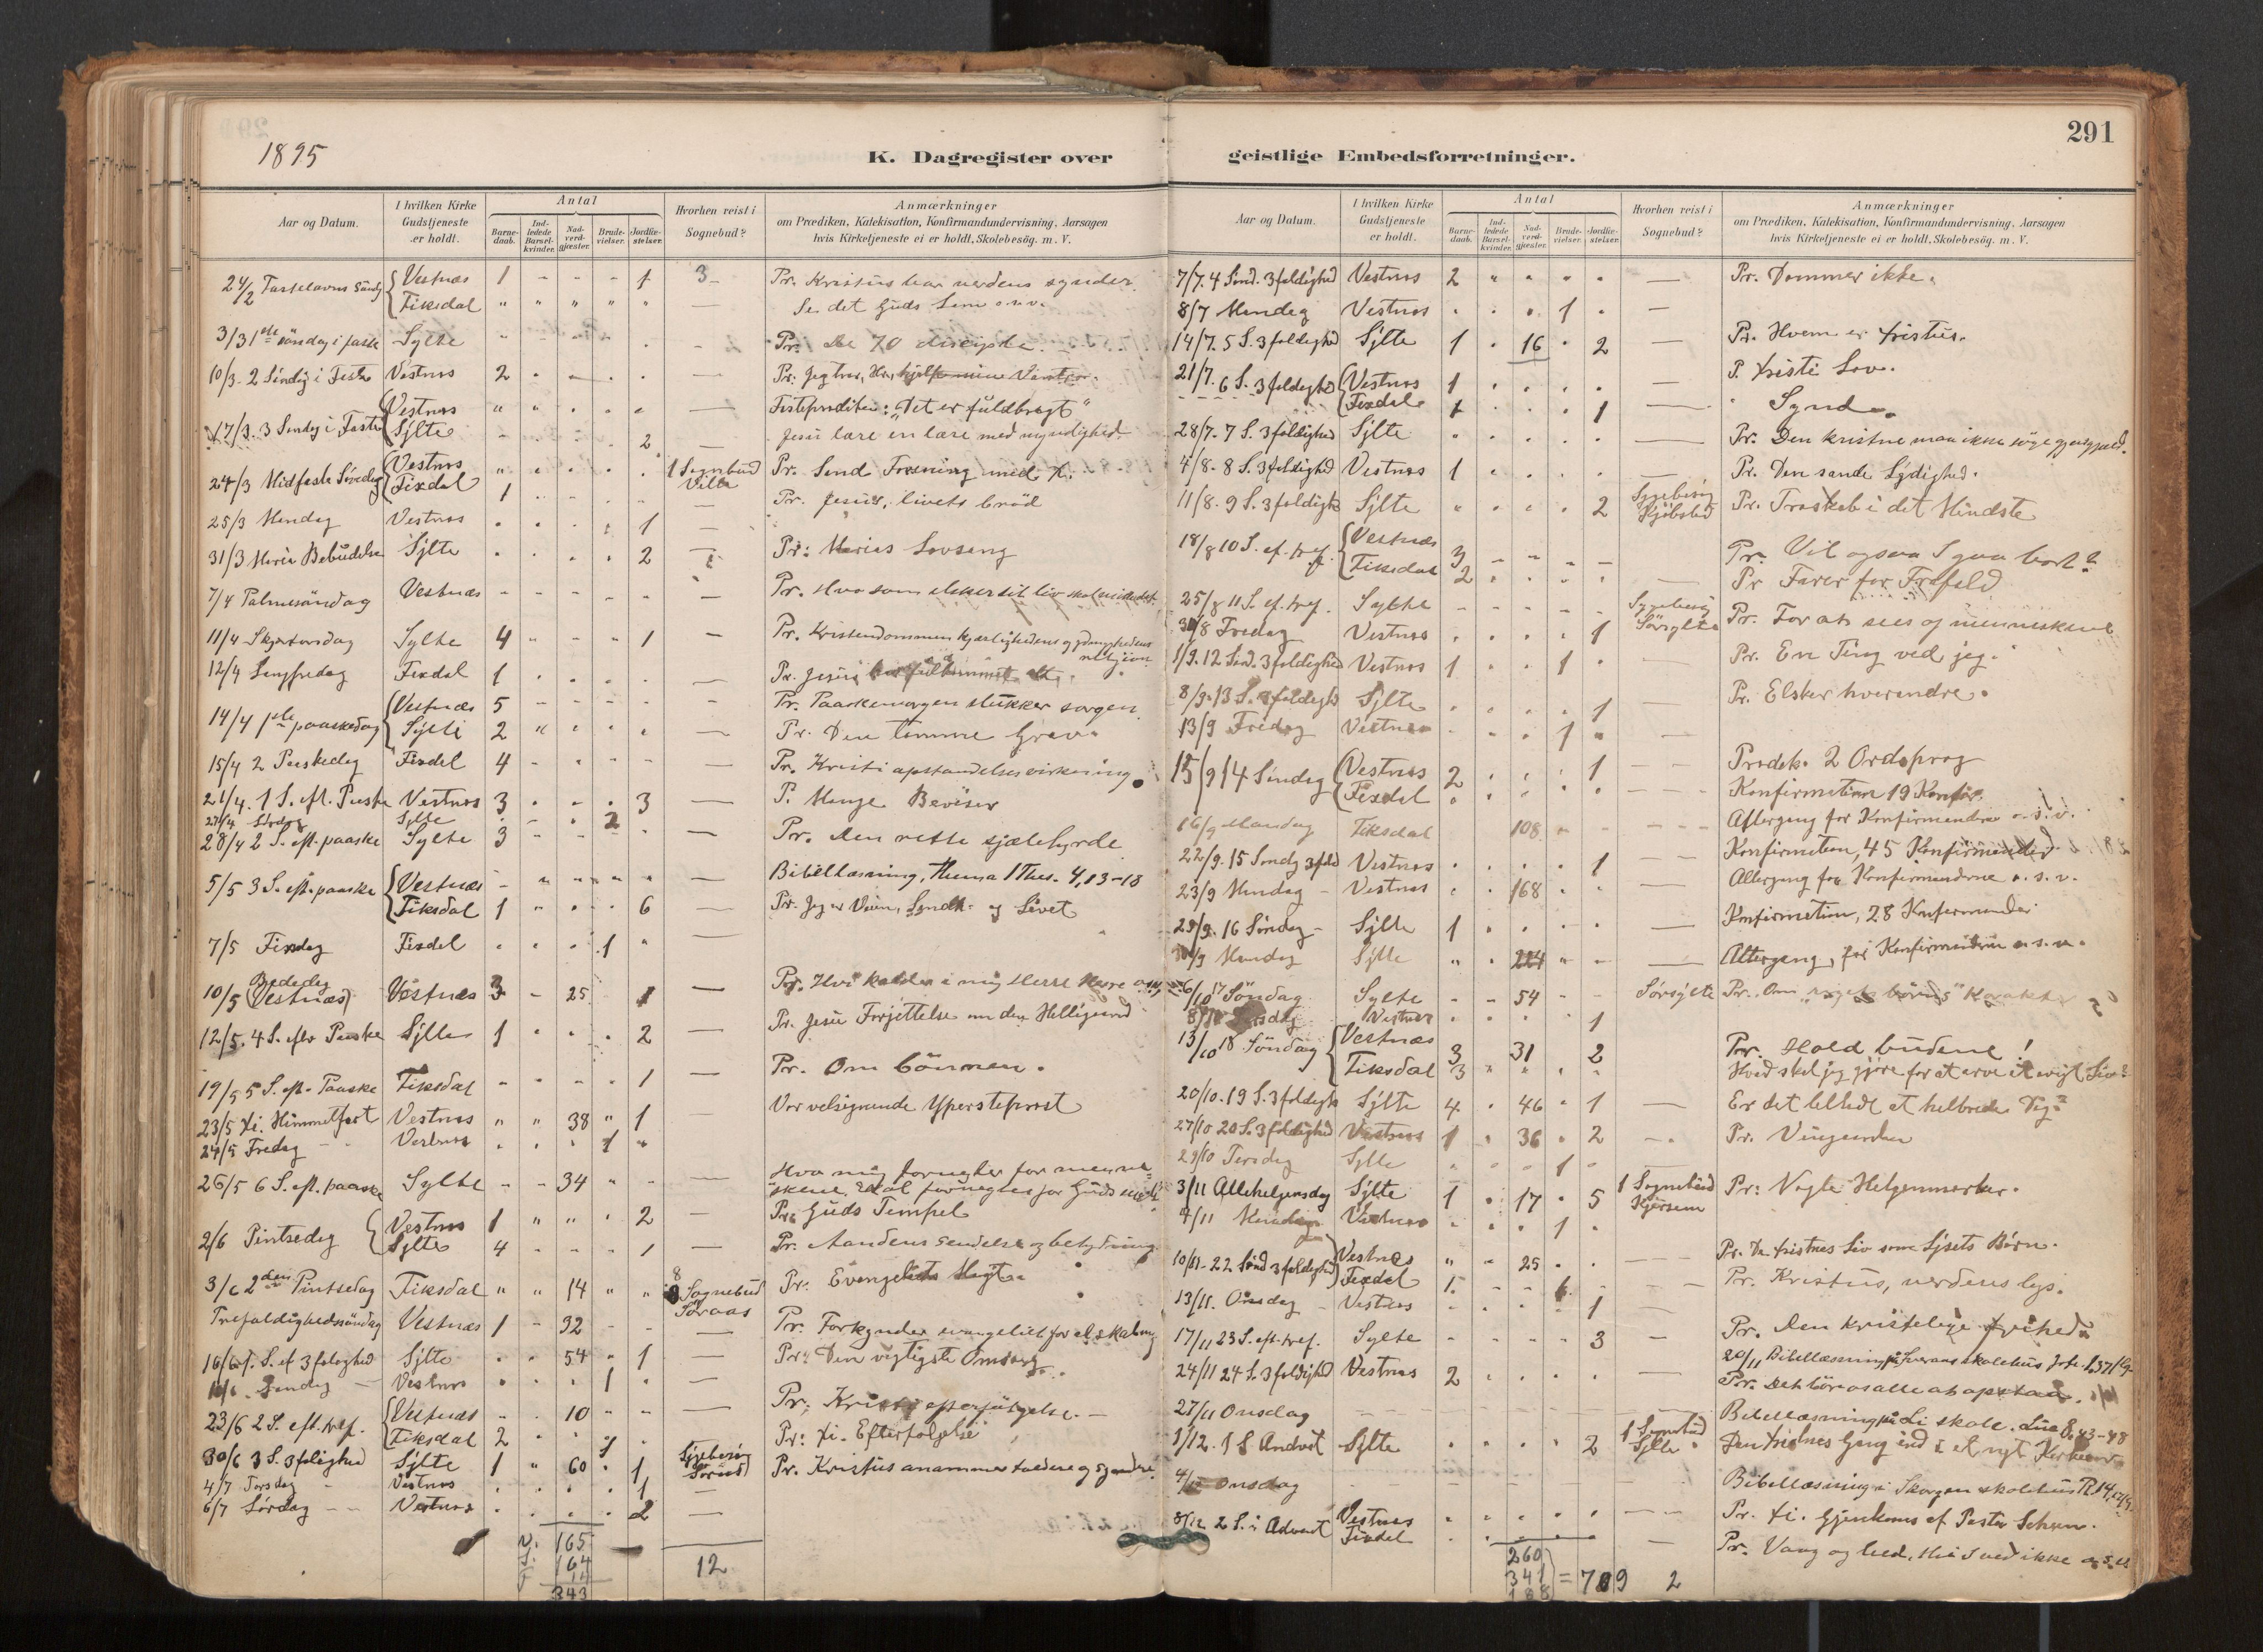 1895
K. Dagregister over
Aar og Datum.
I hvilken Kirke Gudstjeneste er holdt.
Antal
Barnedaab.
Indledede Barselkvinder.
Nadverdgjester.
Brudevielser.
Jordfæstelser.
Hvorhen reist i Sognebud?
Anmærkninger
om Prædiken, Katekisation, Konfirmandundervisning, Aarsagen
hvis Kirketjeneste ei er holdt, Skolebesøg. m. V.
24/2 Fastelavns Søndg Vestnæs 1 - - - 1 3 Pr. Kristus bar verdens synder.
Fiksdal " " " " " — Se det Guds Lam o.s.v.
3/3 1ste søndag i faste Sylte - - - . . - Pr. De 70 disciple.
10/3. 2 Søndg i Faste Vestnæs 2 . - . . — Pr: Jeg tror, Hr., hjælp min Vantro.
17/3. 3 Søndg i Faste Vestnæs " " . . . — Fasteprædiken: "Det er fuldbragt"
Sylte - . . . 2 — Jesu lære en lære med myndighed
24/3 Midfaste Søndag Vestnæs " . . . . 1 Sognebud Villa Pr. Sand Forening med X.
Fixdal 1 - - - - — Pr. Jesus, livets brød
25/3 Mandag Vestnæs . . . : 1 —
31/3 Mariæ Bebudelse Sylte . . . . 2 — Pr: Marias Lovsang
7/4 Palmesøndag Vestnæs - - - - - - Pr. Hvo som elsker sit liv skal miste det.
11/4 Skjærtorsdag Sylte 4 - - - 1 - Pr. Kristendommen kjærlighedens og ydmyghedens religion
12/4 Langfredag Fixdal 1 . . . . — Pr. Jesus har fuldkommet alt.
14/4 1ste paaskedag Vestnæs 5 - - - - - Pr. Paaskemorgen slukker sorgen.
Sylte 2 " . . . — Pr. Den tomme Grav.
15/4 2 Paaskedag Fixdal 4 - . - - — Pr. Kristi opstandelses virkning.
21/4. 1 S. eft. Paaske Vestnæs 3 . - . 3 — P. Mange Beviser
27/4 Lørdag Sylte . - . 2
28/4 2 S. eft. paaske Sylte 3 - - - . — Pr. Den rette sjælehyrde
5/5 3 S. eft. paaske Vestnæs - " " " " — Bibellæsning, Thema 1 Thes. 4,13-18
Fiksdal 1 " . . 6 — Pr. Jeg er Veien, Sandh. og Livet
7/5 Tirsdag Fixdal . . . 1 " —
10/5 Bededag (Vestnæs) Vestnæs 3 - 25 1 — Pr. Hvi kalder i mig Herre Herre o.s.v.
12/5. 4 S. eftr Paaske Sylte 1 . . . 2 — Pr. Jesu Forjættelse om den Helligaand
19/5 5 S. eft. Paaske Fiksdal - - - . 1 — Pr. Om bønnen.
23/5 Xi. Himmelfart Vestnæs " " 38 " 1 — Vor velsignende Ypersteprest
24/5 Fredag - - Vestnæs . . . 1 "
26/5 6 S. eft. paaske Sylte - - 34 " - — Hvo mig fornegter for menneskene, skal fornegtes for Guds engle
2/6 Pintsedag Vestnæs 1 " " . 2 — Pr. Guds Tempel
Sylte 4 - - - 1 — Pr. Aandens sendelse og betydning.
3/6 2den Pintsedag Fiksdal " " 14 " " 8 Sognebud Søraas Pr: Evangeliets Magt.
Trefoldighedssøndag Vestnæs 1 - 92 - - — Pr. Forkynder evangeliet for al skabning
16/6 1. S. ef 3folighed Sylte . . 54 . 1 — Pr: Den vigtigste Omsorg.
Vestnæs . . . 1 . —
23/6 2 S. eft. tref. Vestnæs - . 10 " " — Pr: Kristi efterfølgelse. -
Fiksdal 2 . . . . Pr: Xi. Efterfølgelse
30/6 3 S. 3folighed Sylte 1 " 60 . 1 Sygebesøg Pr. Kristus anammer toldere og syndere.
4/7 Torsdag Vestnæs . . . . 1 —
6/7 Lørdag - - Vestnæs . . . . 2 —
V. 165
S. 164
F 14
343
12
291
geistlige Embedsforretninger.
Aar og Datum.
I hvilken Kirke Gudstjeneste er holdt.
Antal
Barnedaab.
Indledede Barselkvinder.
Nadverdgjester.
Brudevielser.
Jordfæstelser.
Hvorhen reist i Sognebud?
Anmærkninger
om Prædiken, Katekisation, Konfirmandundervisning, Aarsagen
hvis Kirketjeneste ei er holdt, Skolebesøg. m. V.
7/7. 4 Sønd. 3foldighed Vestnæs 2 " . . . — Pr. Dømmer ikke.
8/7 Mandag Vestnæs . . . 1 . —
14/7. 5 S. 3foldighed Sylte 1 . 16 . 2 — Pr. Hvem er Xristus.
21/7. 6 S. 3foldighed Vestnæs 1 . . . . — P. Xristi Lov.
Fixdal 1 . . . 1 — Synd
28/7. 7 S. 3foldighed Sylte . . . . . — Pr. Den kristne maa ikke søge gjengjæld.
4/8. 8 S. 3foldighed Vestnæs 1 . . . . — Pr. Den sande Lydighed.
11/8. 9 S. 3foldighed Sylte " . . . 2 Sygebesøg Pr. Troskab i det Mindste
18/8 10 S. ef. tref. Vestnæs 3 - - - - Pr. Vil ogsaa I gaa bort?
Fiksdal 2 . . . . — Pr Farer for Frafald
25/8 11 S. ef. tref. Sylte - - - - - Sygebesøg Sørsylte Pr. For at sees af menneskene
30/8 Fredag Vestnæs . . . . 1
1/9. 12 Sønd. 3foldighed Vestnæs 1 . . 1 . — Pr. En Ting ved jeg.
8/9. 13 S. 3foldighed Sylte . . . . 1 Pr. Elsker hverandre.
13/9 Fredag Vestnæs . . . 1 " —
15/9 14 Søndag Vestnæs 2 . . . 1 - - Prædik. 2 Ordsprog
Fixdal . . . . . - - - Konfirmation 19 Konfir.
16/9 Mandag Fiksdal 108 - - - - - Altergang for Konfirmanderne o.s.v.
22/9. 15 Søndg 3fold Vestnæs . . . . 1 - Konfirmation, 45 Konfirmander
23/9 Mandag - Vestnæs . . 168 . . — Altergang for Konfirmanderne o.s.v.
29/9. 16 Søndag - Sylte 1 . . . . — Konfirmation, 28 Konfirmander
30/9 Mandag Sylte " . 224 - - — Altergang, for Konfirmanderne o.s.v.
6/10 17 Søndag Sylte - - 54 - - Sørsylte Pr. Om
Tirsdag Vestnæs . . . . 1
13/10 18 Søndag Vestnæs 3 31 2 Pr. Hold budene!
Fiksdal 3 " " . " Hvad skal jeg gjøre for at arve et evigt Liv?
20/10. 19 S. 3foldigh Sylte 4 . 46 . 1 — Er det tilladt at helbrede
27/10 20 S. 3foldighed Vestnæs 1 . 36 . 2 - Pr. Vingaarden
29/10 Tirsdag Sylte . . . 1 "
3/11 Allehelgensdag Sylte 1 . 17 . 5 1 Sognebud Kjersem Pr: Nogle Helgenmerker.
4/11 Mandag Vestnæs . . . 1 .
10/11. 22 Sønd 3foldighed Vestnæs " " 25 . . — Pr. De Xristnes Liv som Lysets Børn.
Fixdal 1. - - 1 - - Pr. Kristus, verdens lys.
13/11. Onsdag - Vestnæs . . . . 1 —
17/11 23 S. eft. tref. Sylte - - - - 3 - Pr. Den kristelige frihed
24/11 24 S. 3foldighed Vestnæs 2 . . . . — 20/11 Bibellæsning
Pr. Det bør os alle at opstaa.
27/11 Onsdag - - - - - Bibellæsning på Li skole. Luc 8. 43-48
1/12. 1 S Andvet Sylte . . . . 2 1 Sognebud Sylte Den Xristnes Gang ind i et nyt Kirkeaar
Onsdag - - - - - Bibellæsning i Skorgen skolehus
8/12 2 S. i Advent Vestnæs . . . . . - - Pr. Xi. Gjenkomst af Pastor
Fixdal . . . . . — Pr. Vaag og bed, thi I ved ikke o.s.v.
260
341
108
= 709
2